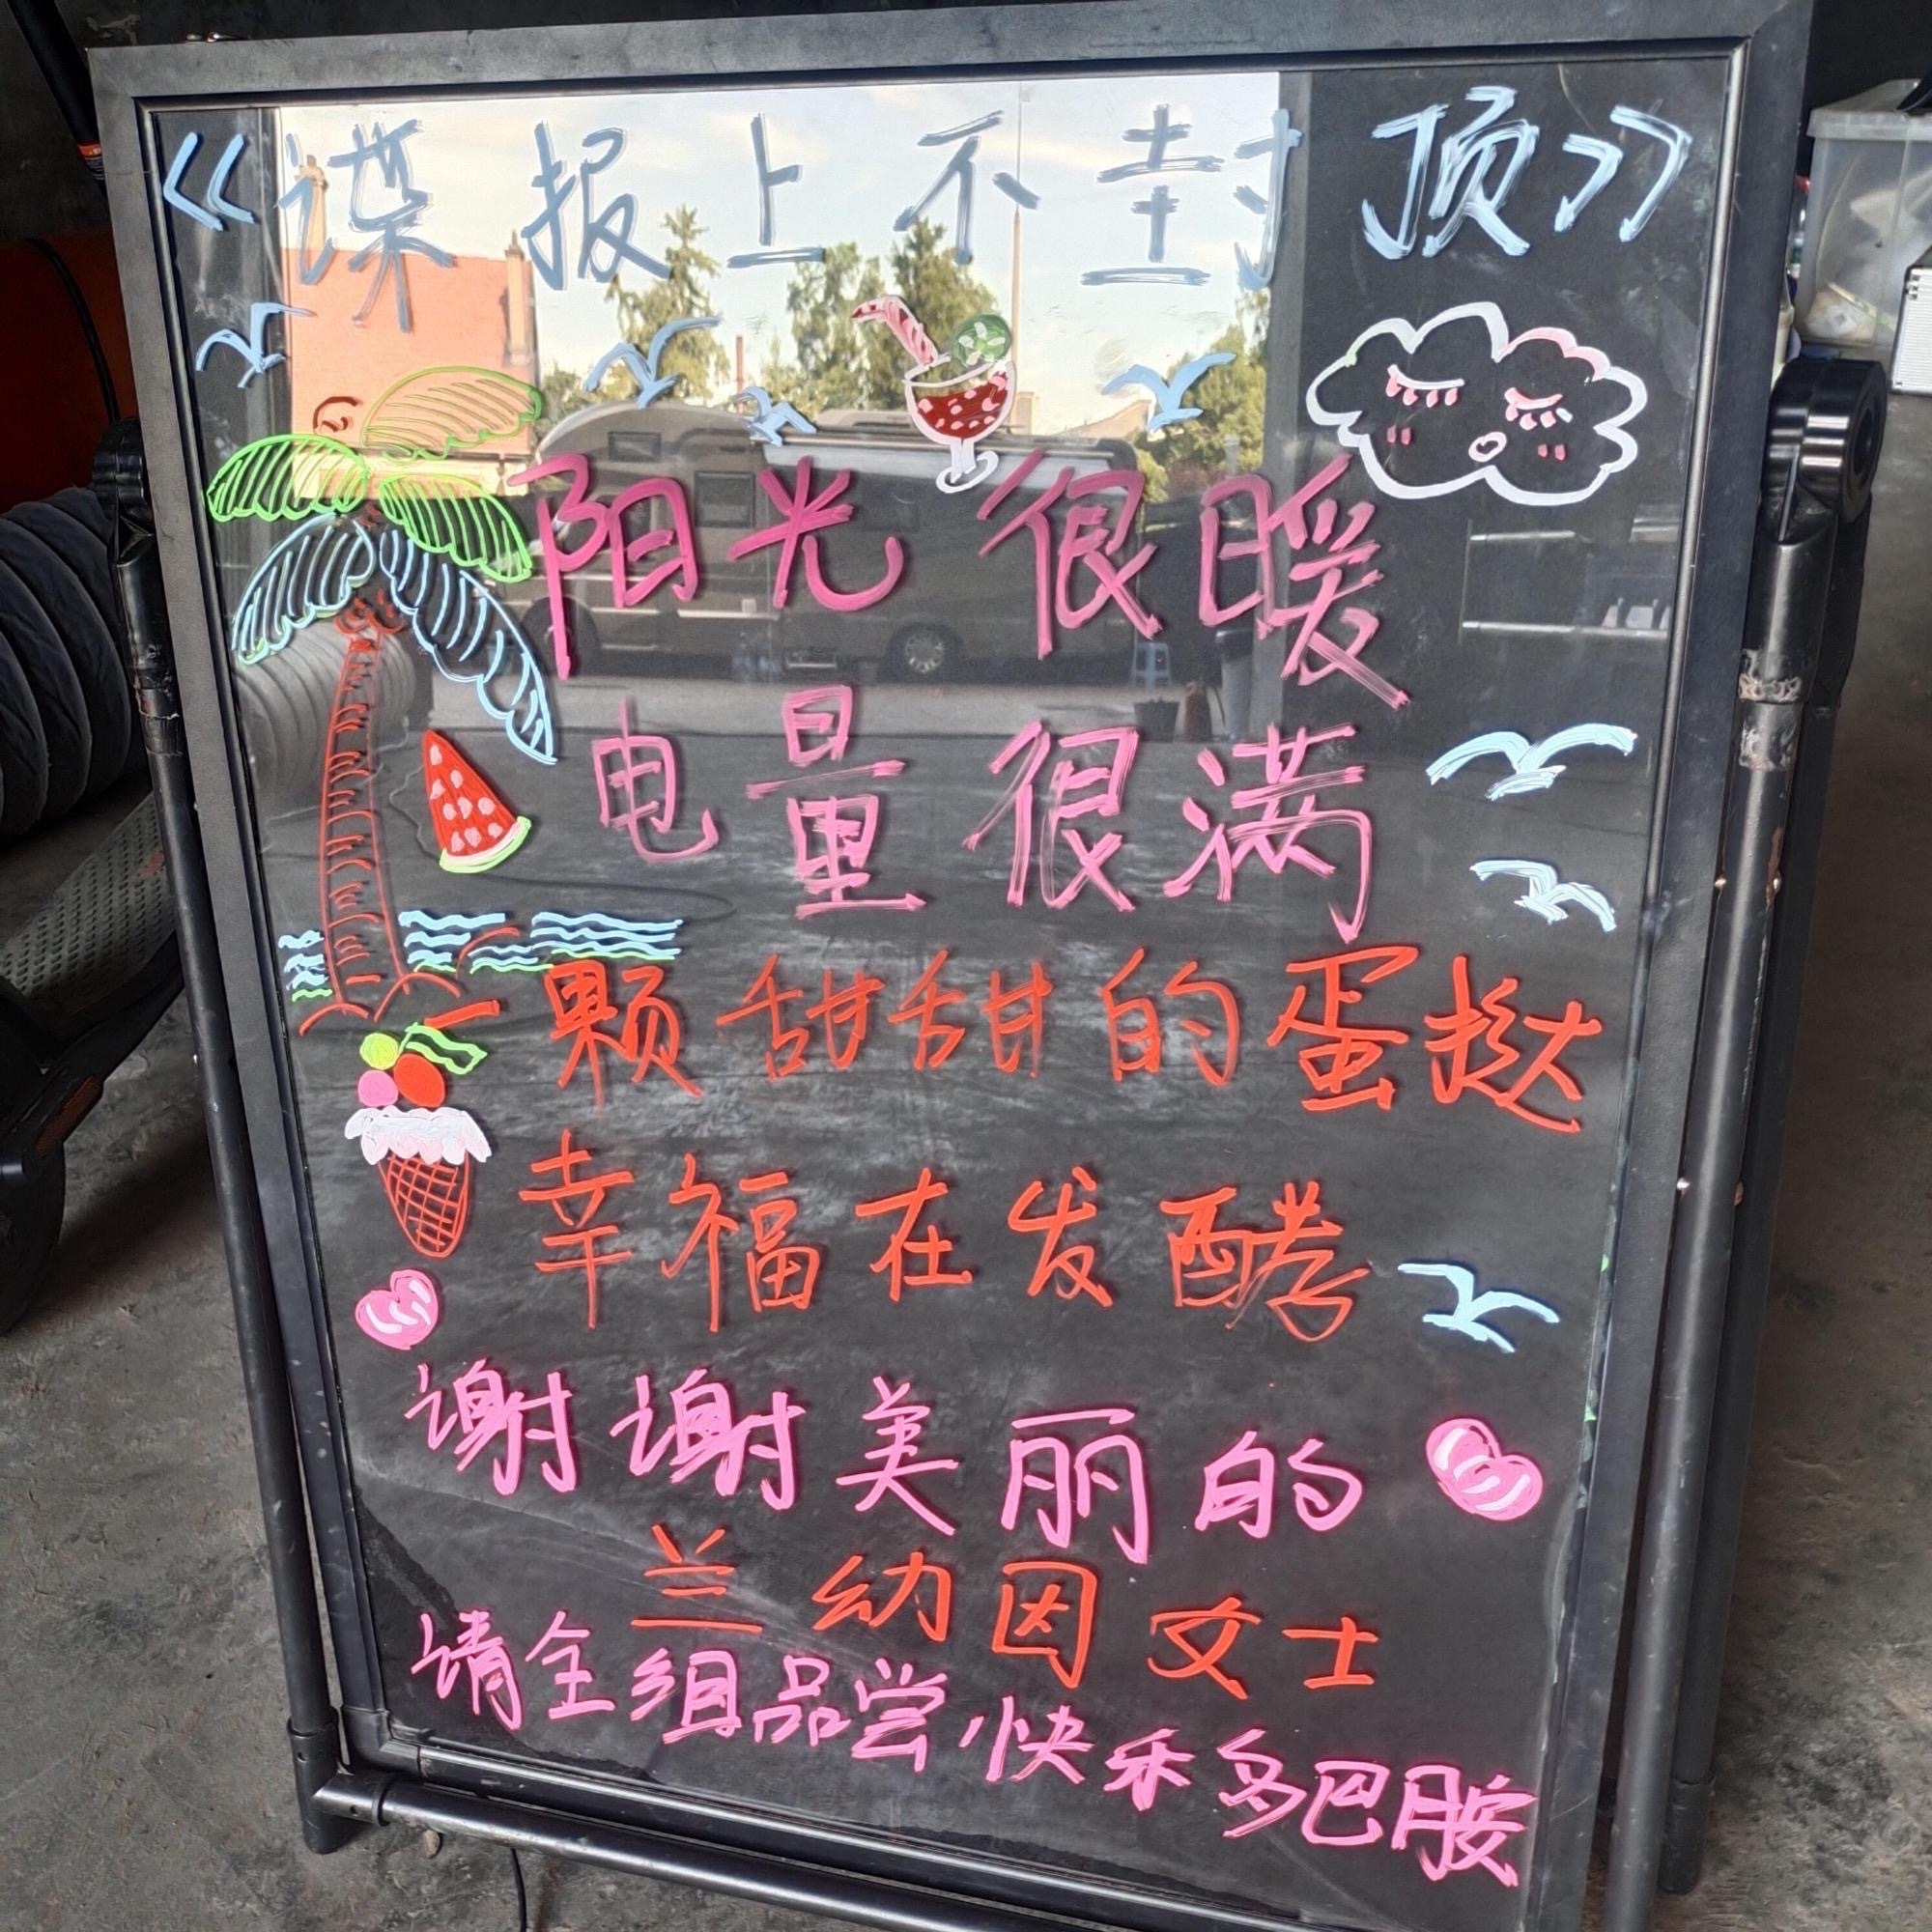 《谍报上不封顶》
阳光很暖
电量很满
一颗甜甜的蛋挞
幸福在发酵
谢谢美丽的
兰幼因女士
请全组品尝快乐多巴胺